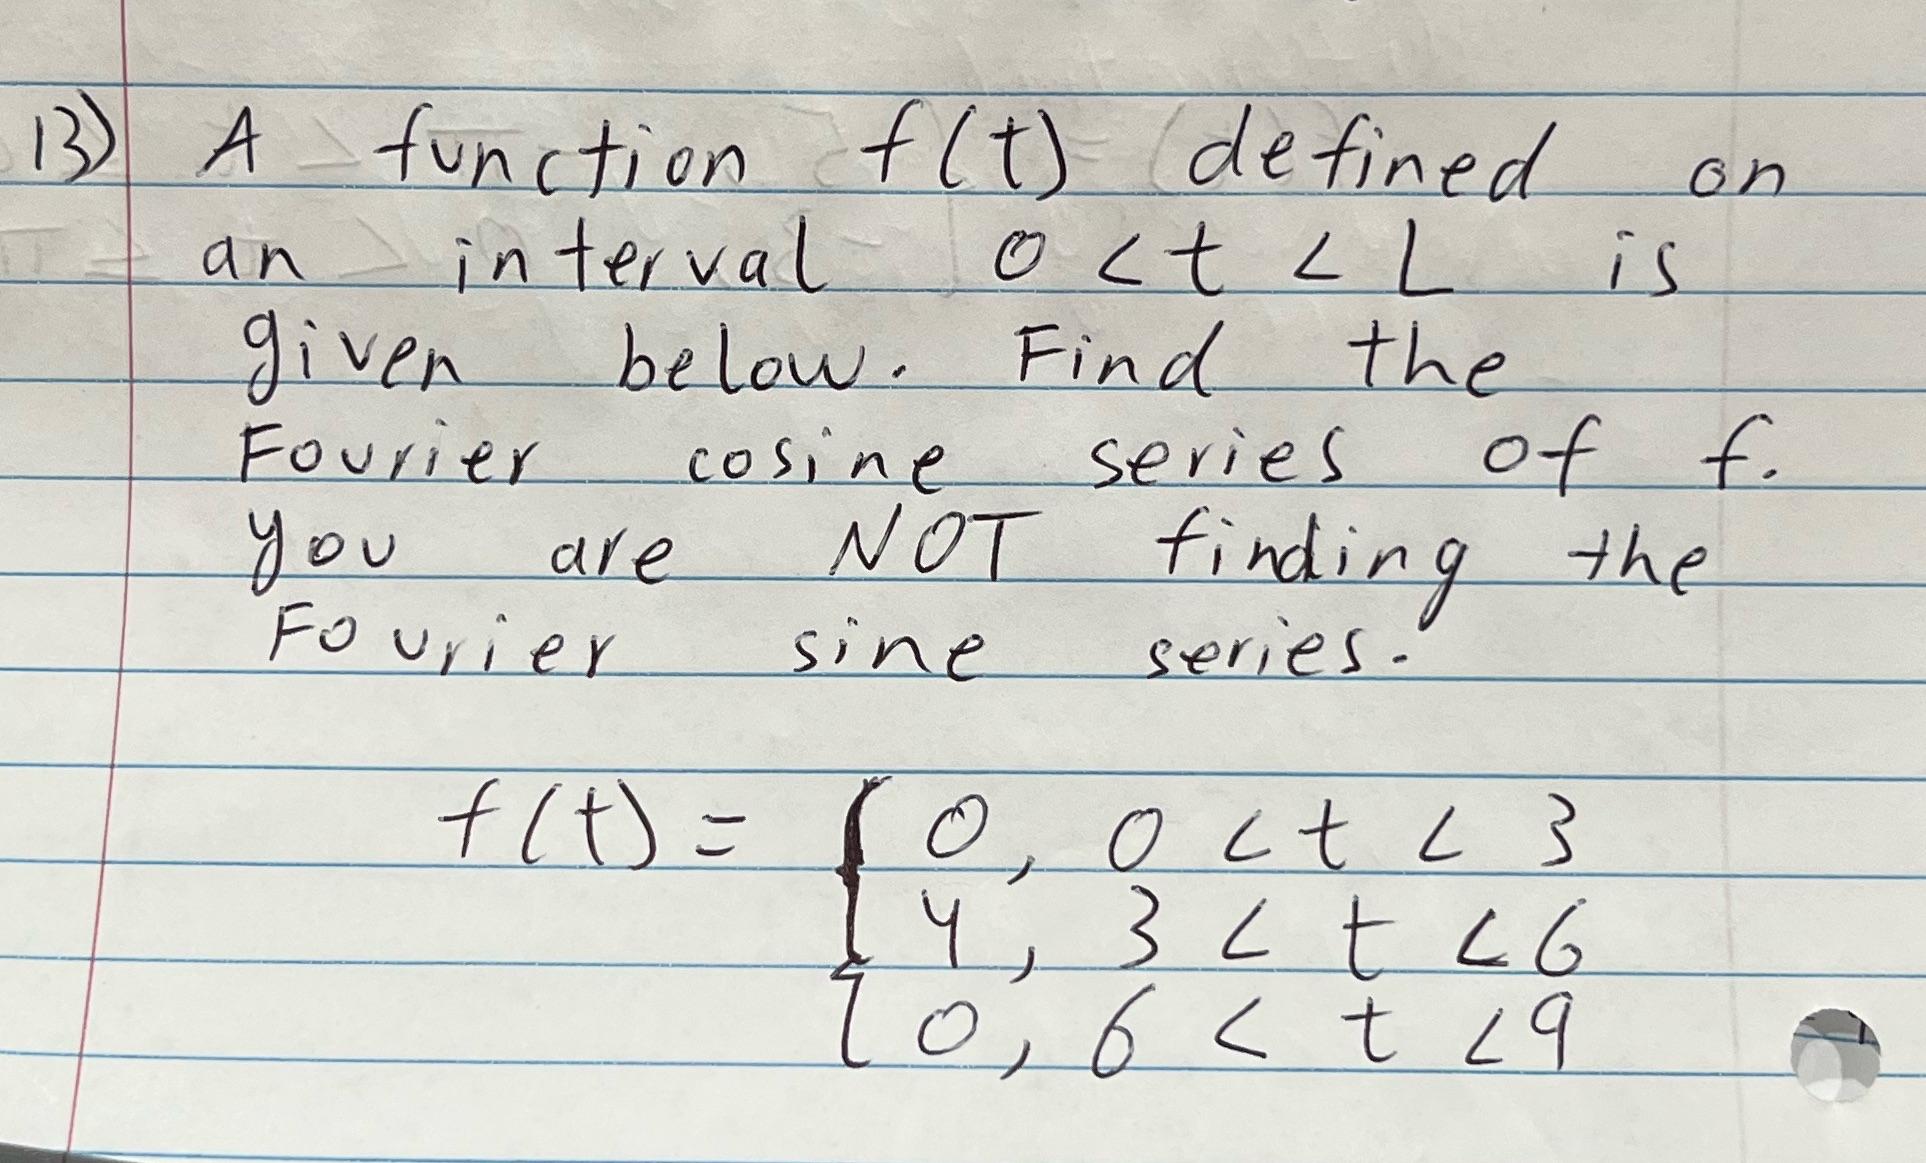 13) A function f(t) defined on
an interval 0 < t < L is
given below. Find the
Fourier cosine series of f.
You are NOT finding the
Fourier sine series.
f(t) = { 0, 0 < t < 3
4, 3 < t < 6
0, 6 < t < 9